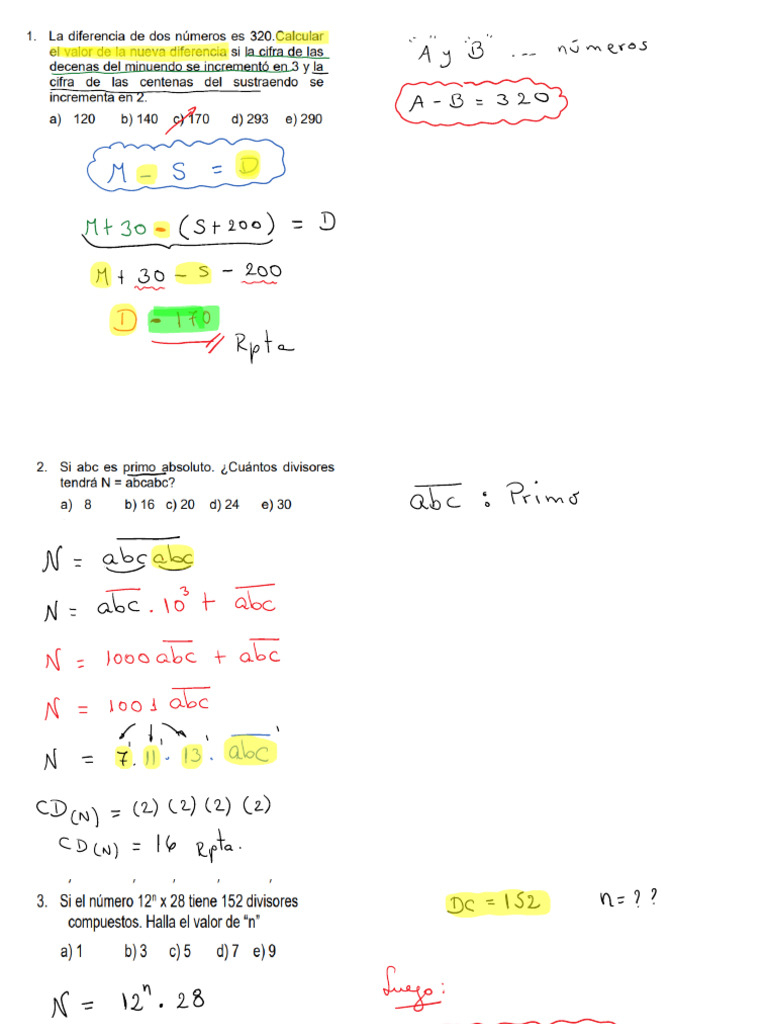 1. La diferencia de dos números es 320.Calcular
el valor de la nueva diferencia si la cifra de las
decenas del minuendo se incrementó en 3 y la
cifra de las centenas del sustraendo se
incrementa en 2.
a) 120 b) 140 c) 170 d) 293 e) 290
"A" y "B" ... números
A - B = 320
M - S = D
M + 30 - (S + 200) = D
M + 30 - S - 200
D - 170
Rpta
2. Si abc es primo absoluto. ¿Cuántos divisores
tendrá N = abcabc?
a) 8 b) 16 c) 20 d) 24 e) 30
abc : Primo
N = abcabc
N = abc . 10³ + abc
N = 1000 abc + abc
N = 1001 abc
N = 7 . 11 . 13 . abc
CD(N) = (2) (2) (2) (2)
CD(N) = 16 Rpta.
3. Si el número 12ⁿ x 28 tiene 152 divisores
compuestos. Halla el valor de “n”
a) 1 b) 3 c) 5 d) 7 e) 9
DC = 152 n = ??
Luego:
N = 12ⁿ . 28